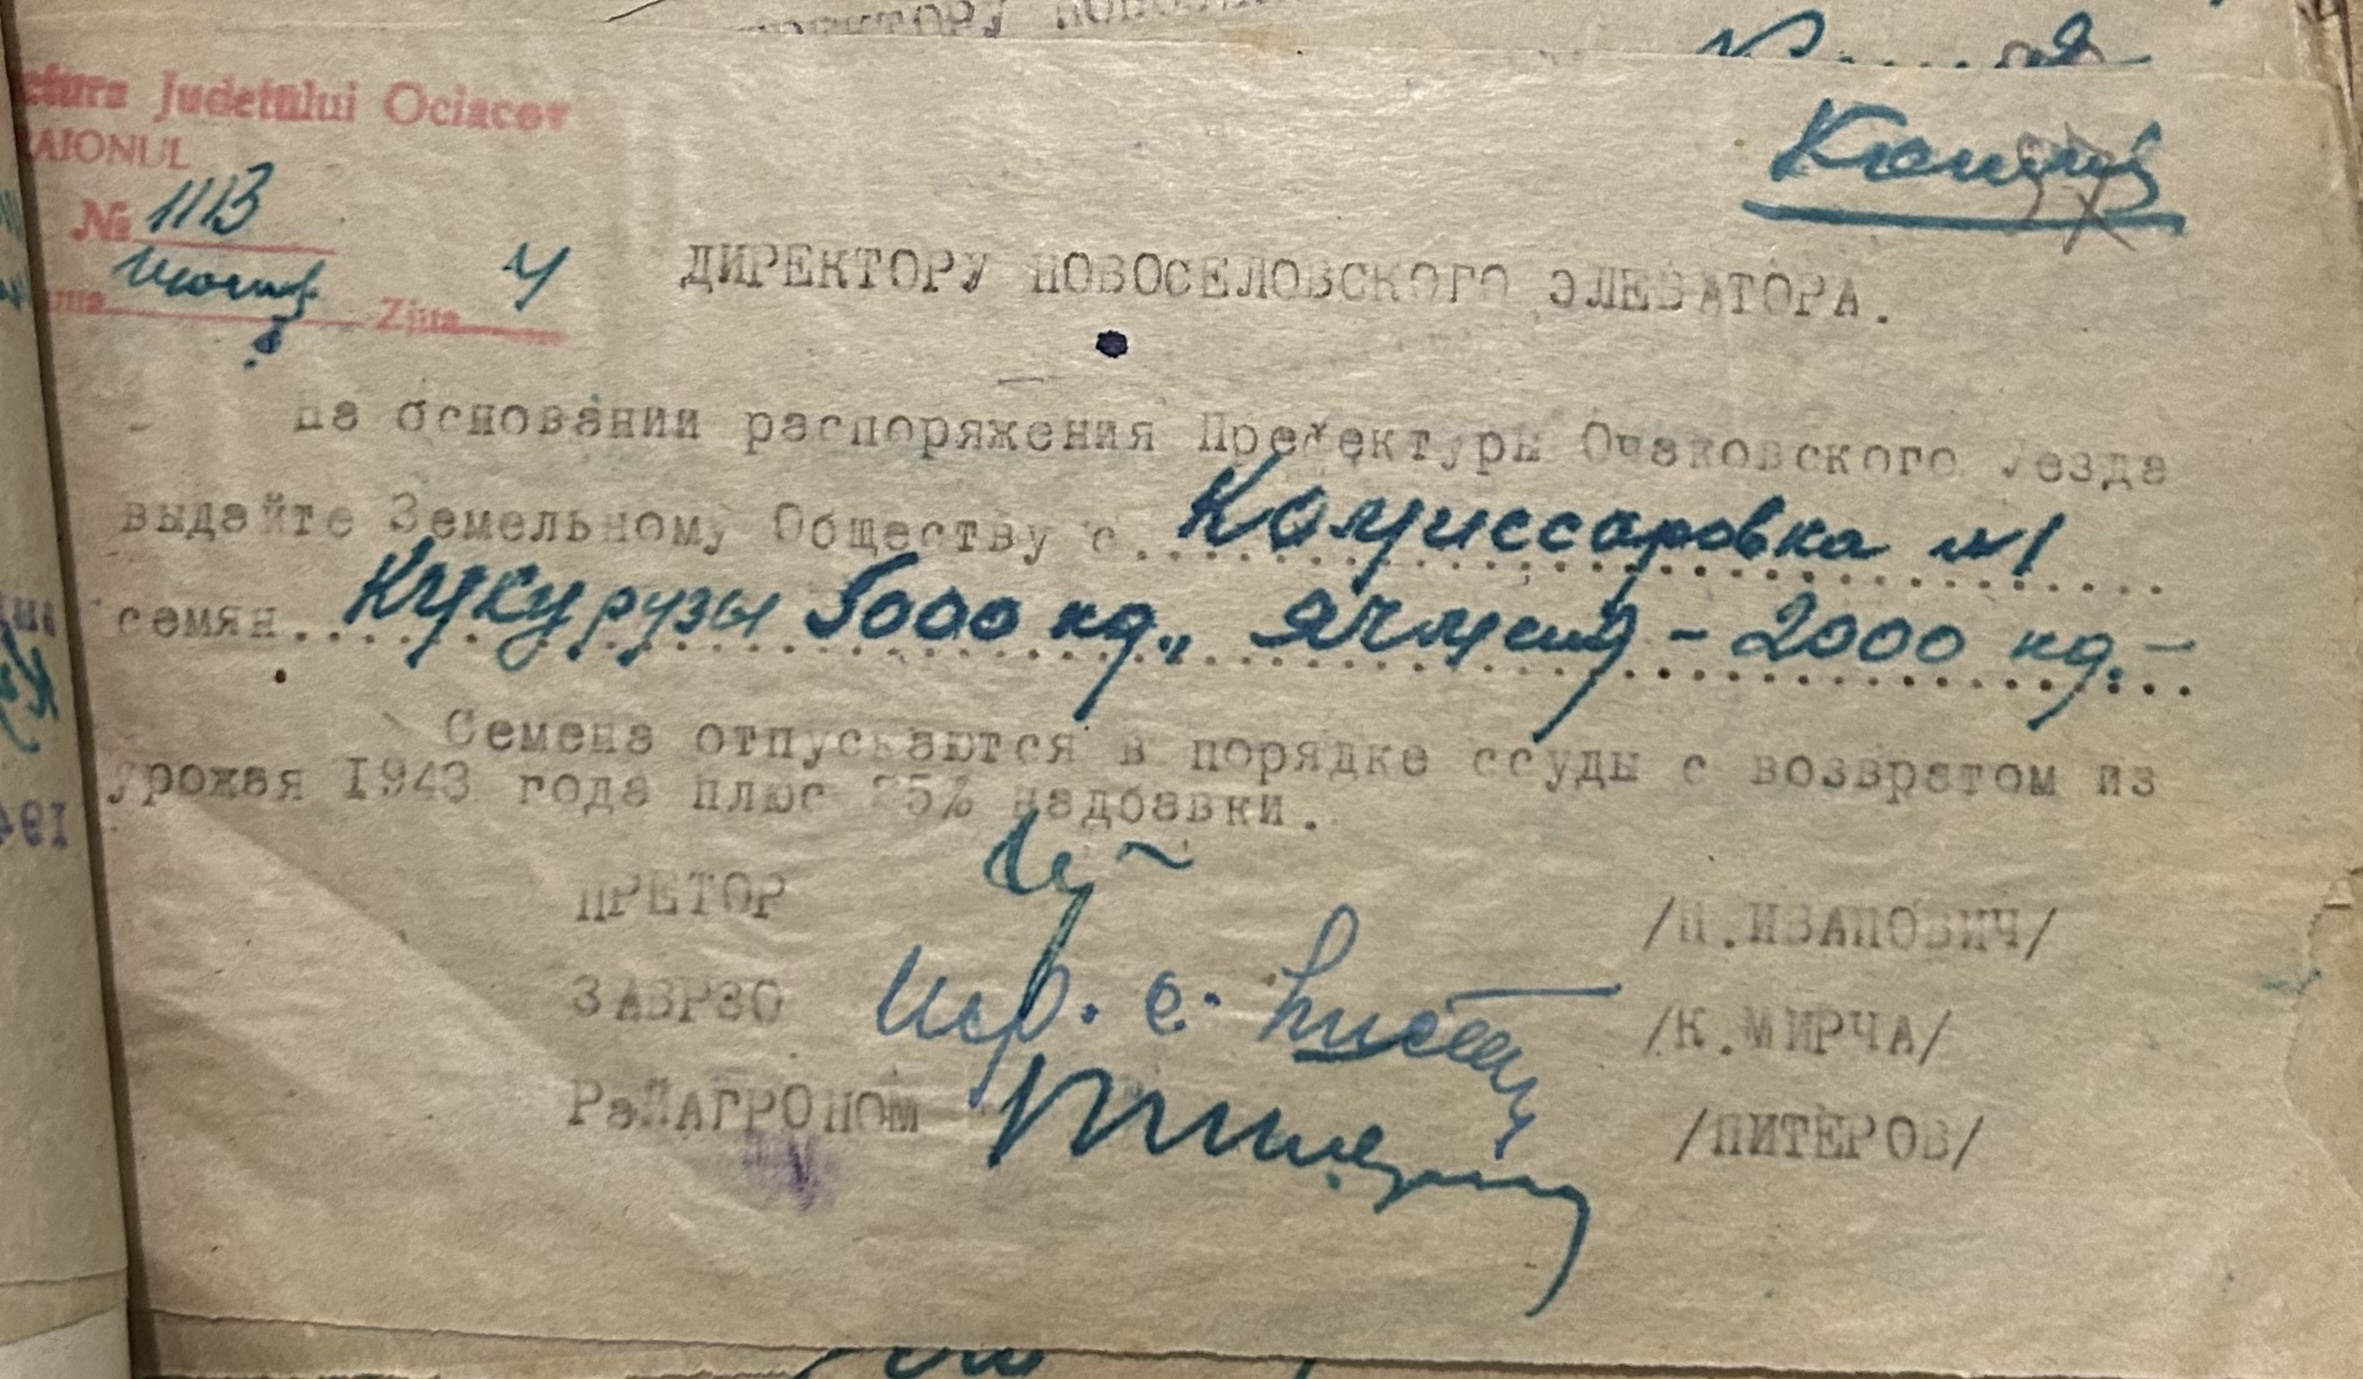 Judetului Ociacov
RAIONUL
№ 1113
Ziua 4
Копия
ДИРЕКТОРУ НОВОСЕЛОВСКОГО ЭЛЕВАТОРА.
На основании распоряжения Префектуры Очаковского Уезда
выдайте Земельному Обществу с. Комиссаровка №1
семян Кукурузы 5000 кг., Ячменя - 2000 кг. -
Семена отпускаются в порядке ссуды с возвратом из
урожая 1943 года плюс 25% надбавки.
ПРЕТОР /П.ИВАНОВИЧ/
ЗАВРЗО /К.МИРЧА/
РаЙАГРОНОМ /ПИТЕРОВ/